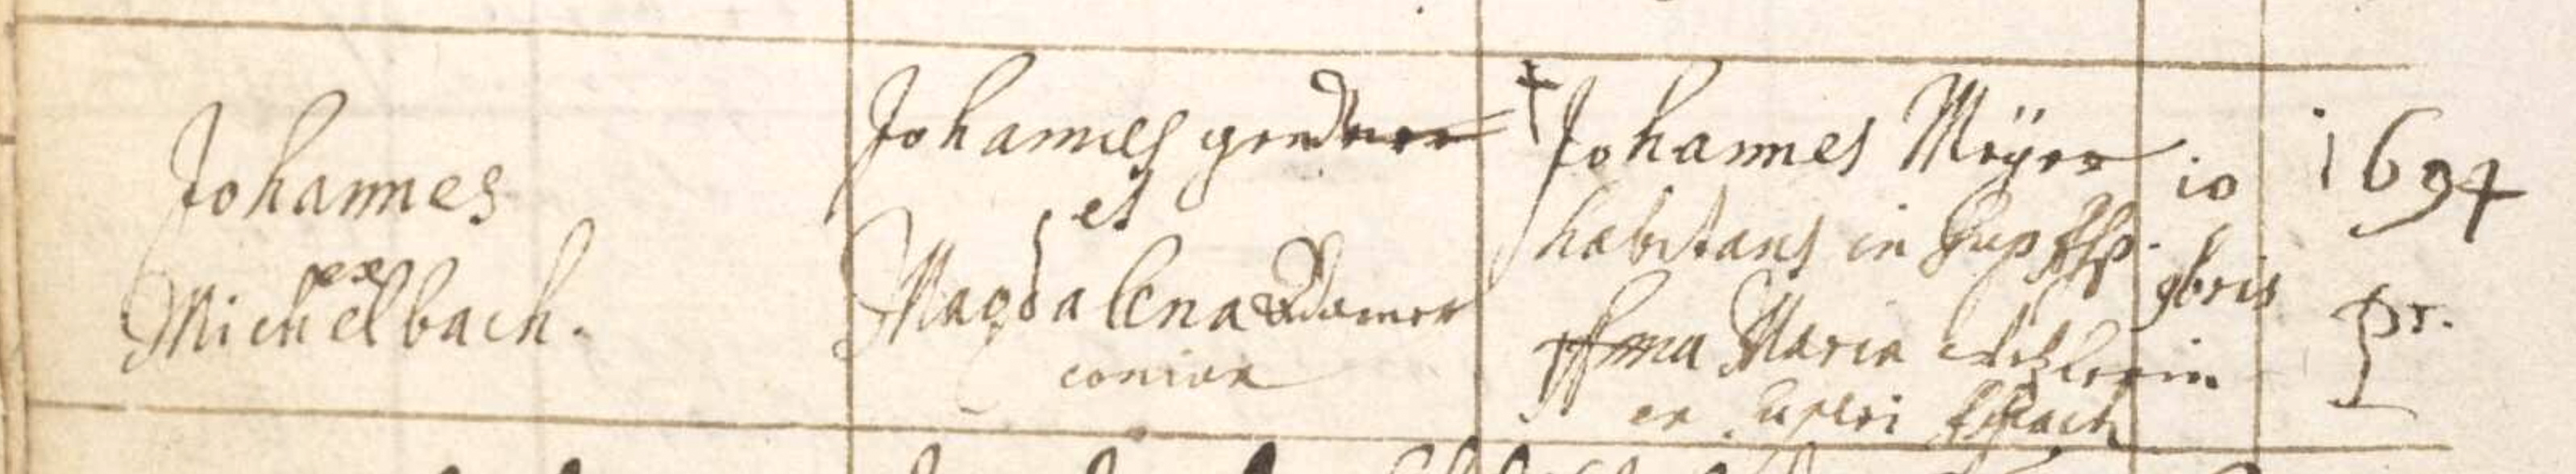 Johannes
ex
Michelbach.
Johannes
et
Magdalena
coniux
† Johannes Meÿer
habitans in
Anna Maria
ex superi Espach
io
9bris
1694
Pr.